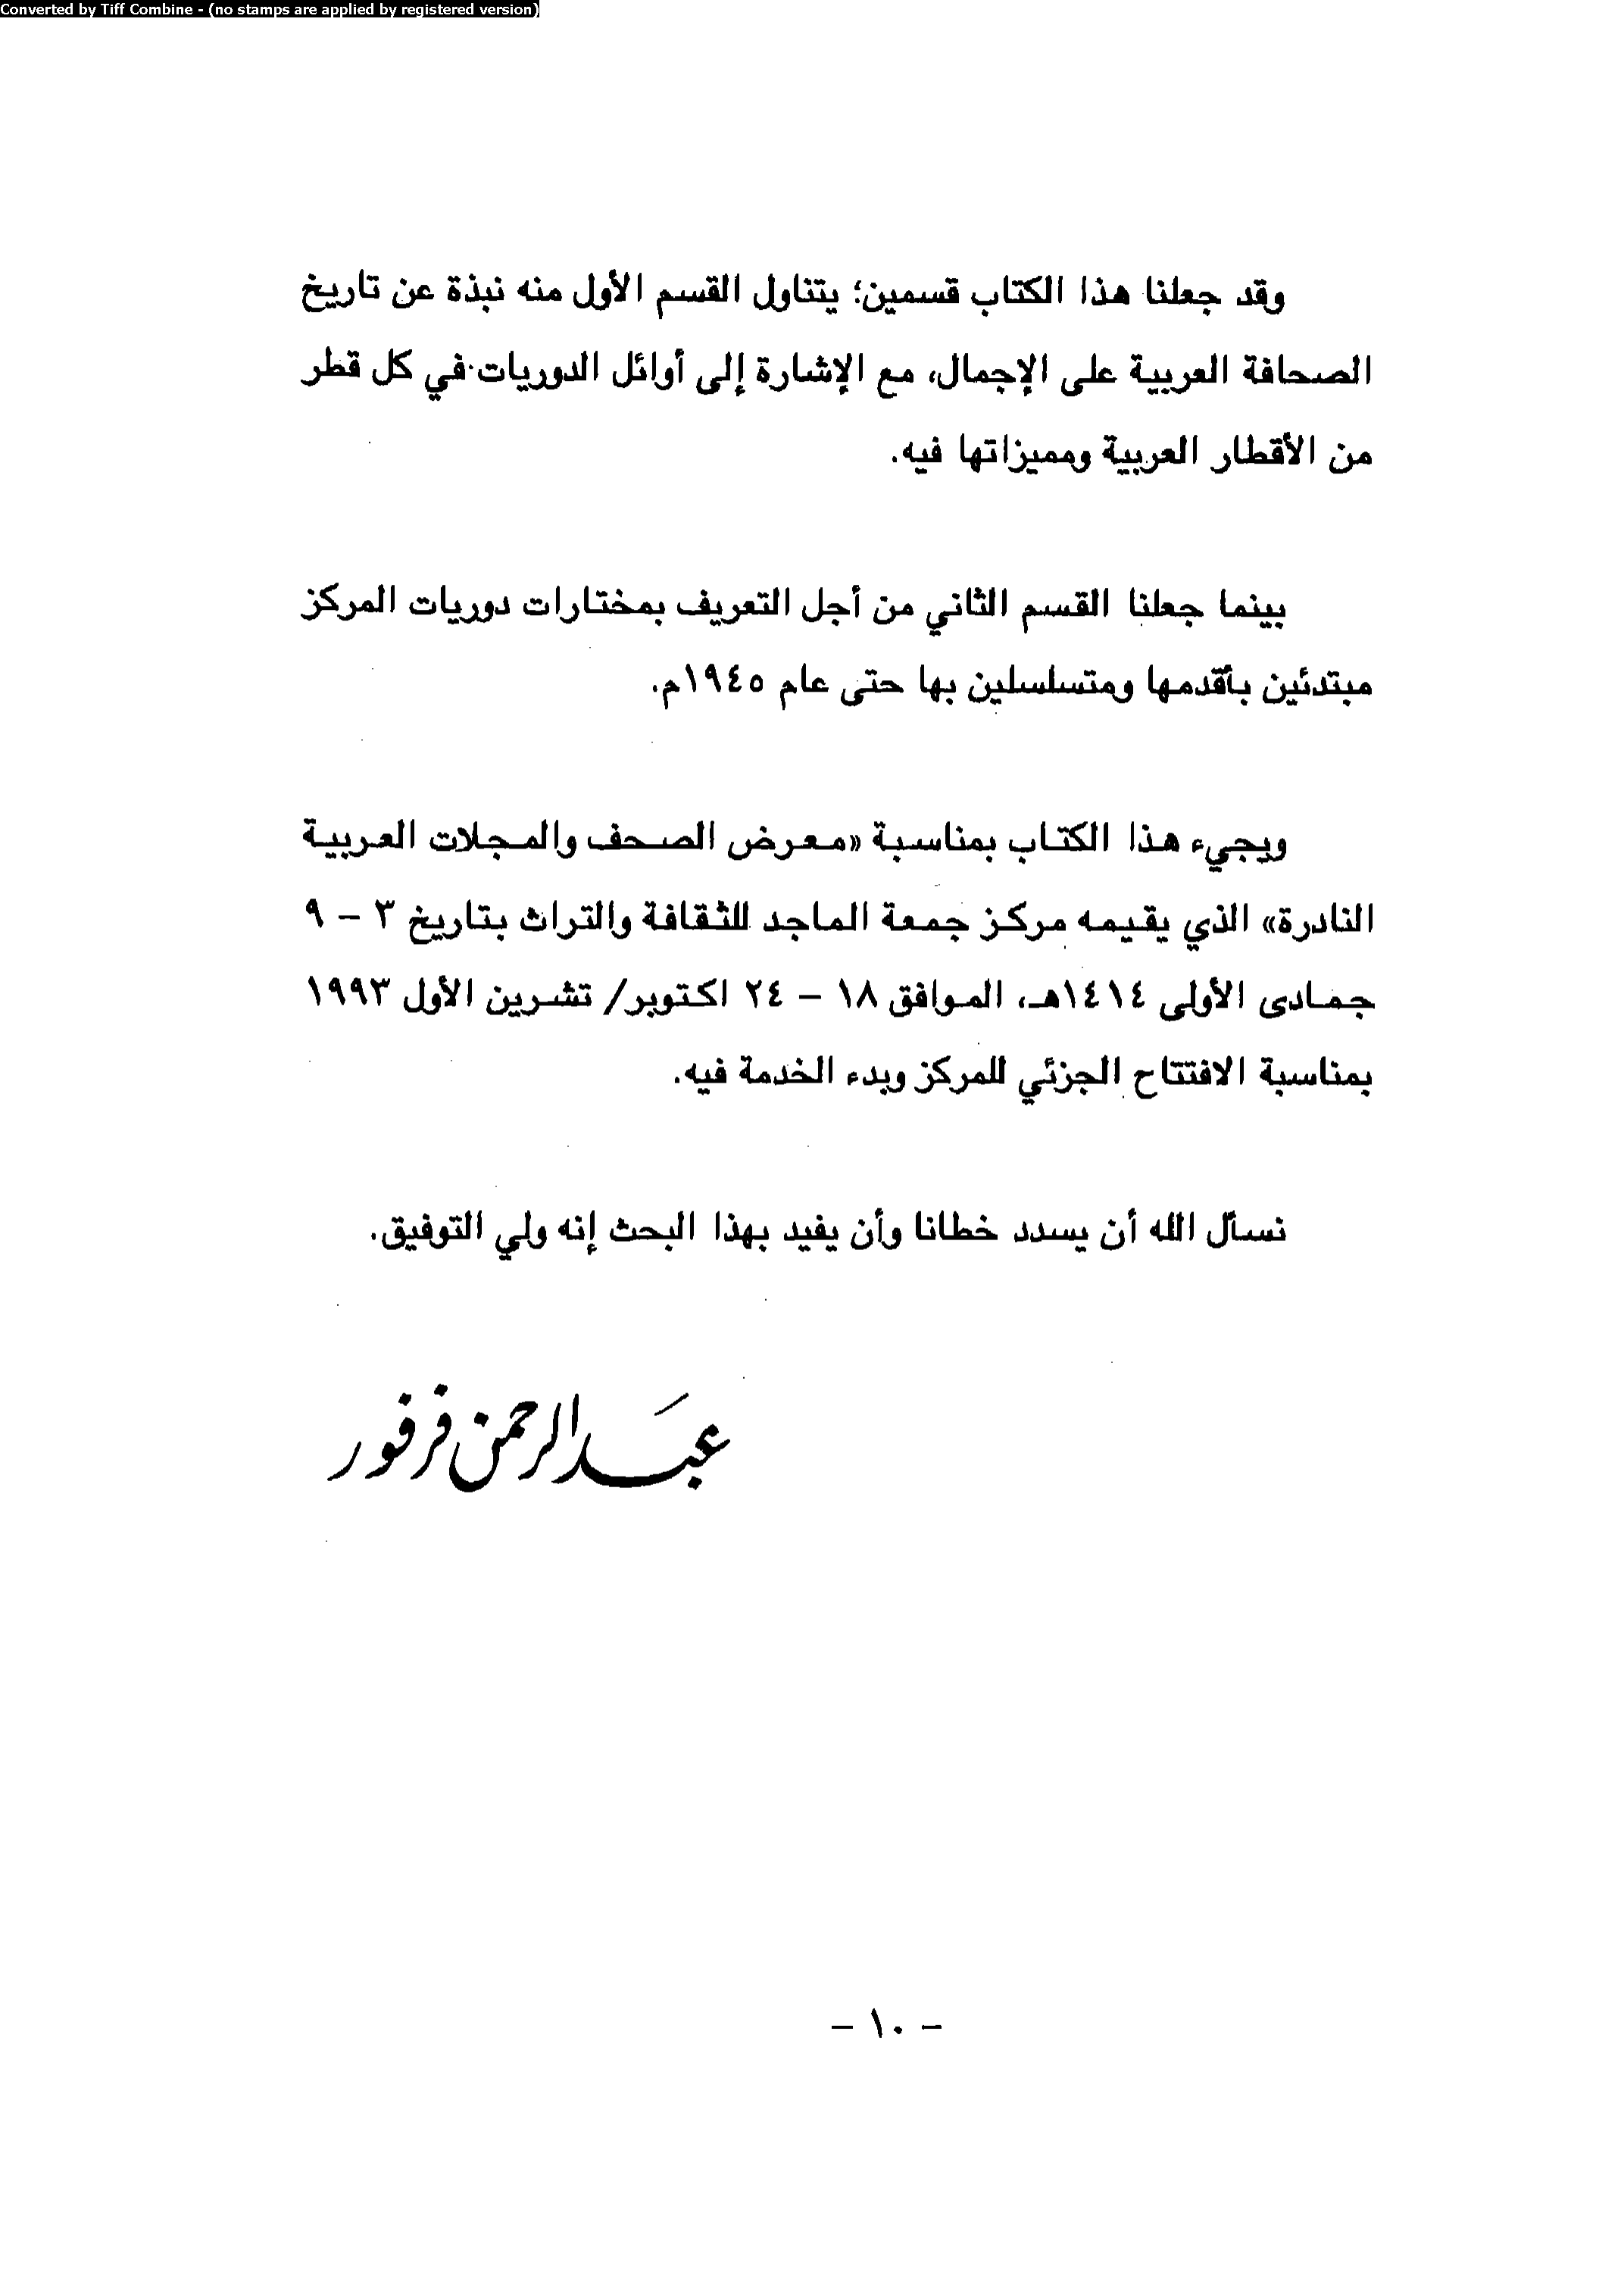 Converted by Tiff Combine - (no stamps are applied by registered version)
وقد جعلنا هذا الكتاب قسمين؛ يتناول القسم الأول منه نبذة عن تاريخ
الصحافة العربية على الإجمال، مع الإشارة إلى أوائل الدوريات في كل قطر
من الأقطار العربية ومميزاتها فيه.
بينما جعلنا القسم الثاني من أجل التعريف بمختارات دوريات المركز
مبتدئين بأقدمها ومتسلسلين بها حتى عام ١٩٤٥م.
ويجيء هذا الكتاب بمناسبة «معرض الصحف والمجلات العربية
النادرة» الذي يقيمه مركز جمعة الماجد للثقافة والتراث بتاريخ ٣ – ٩
جمادى الأولى ١٤١٤هـ، الموافق ١٨ – ٢٤ اكتوبر/ تشرين الأول ١٩٩٣
بمناسبة الافتتاح الجزئي للمركز وبدء الخدمة فيه.
نسأل الله أن يسدد خطانا وأن يفيد بهذا البحث إنه ولي التوفيق.
عبد الرحمن فرفور
– ١٠ –